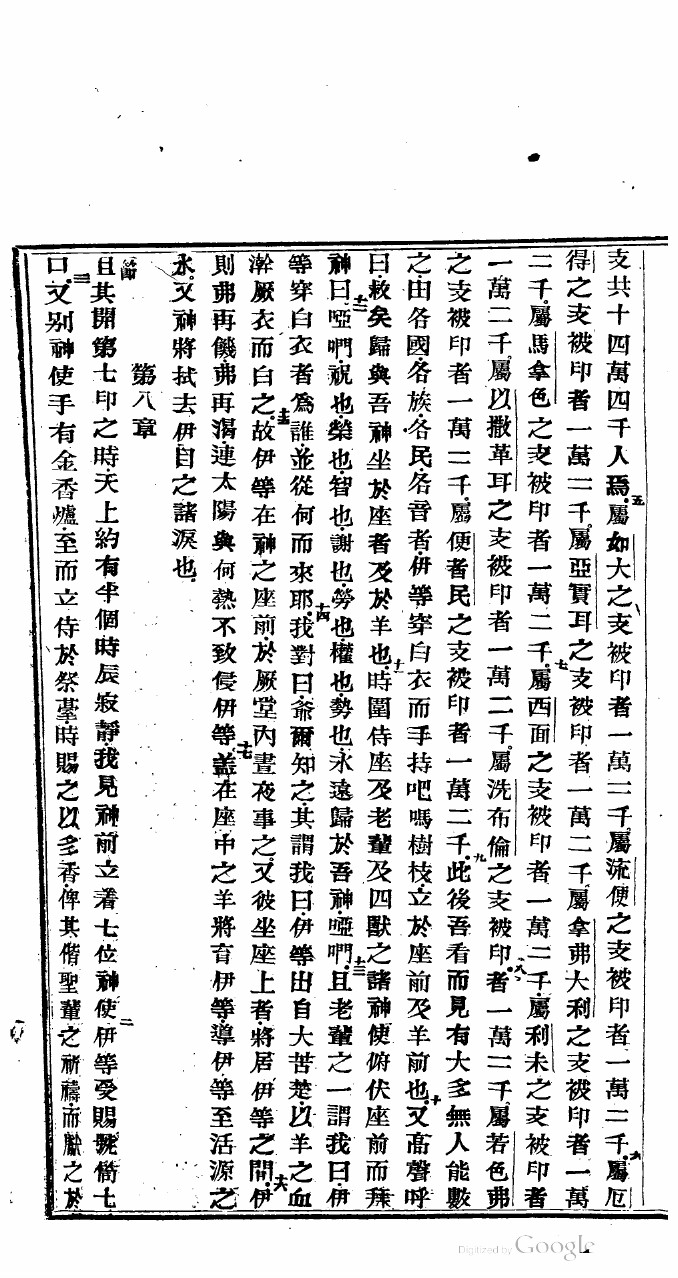 支共十四萬四千人焉五屬如大之支被印者一萬二千屬流便之支被印者一萬二千六屬厄
得之支被印者一萬二千屬亞實耳之支被印者一萬二千屬拿弗大利之支被印者一萬
二千屬馬拿色之支被印者一萬二千七屬西面之支被印者一萬二千屬利未之支被印者
一萬二千屬以撒革耳之支被印者一萬二千八屬洗布倫之支被印者一萬二千屬若色弗
之支被印者一萬二千屬便者民之支被印者一萬二千九此後吾看而見有大多無人能數
之由各國各族各民各音者伊等穿白衣而手持吧嗎樹枝立於座前及羊前也十又高聲呼
曰救矣歸與吾神坐於座者及於羊也十一時圍侍座及老輩及四獸之諸神使俯伏座前而拜
神曰十二啞們祝也榮也智也謝也勞也權也勢也永遠歸於吾神啞們十三且老輩之一謂我曰伊
等穿白衣者為誰並從何而來耶十四我對曰爺爾知之其謂我曰伊等出自大苦楚以羊之血
滌厥衣而白之十五故伊等在神之座前於厥堂內晝夜事之又彼坐座上者將居伊等之間十六伊
則弗再饑弗再渴連太陽與何熱不致侵伊等十七蓋在座中之羊將育伊等導伊等至活源之
水又神將拭去伊目之諸淚也
第八章
節一且其開第七印之時天上約有半個時辰寂靜我見神前立着七位神使二伊等受賜號筒七
口三又別神使手有金香爐至而立侍於祭臺時賜之以多香俾其偕聖輩之祈禱而獻之於
Digitized by Google